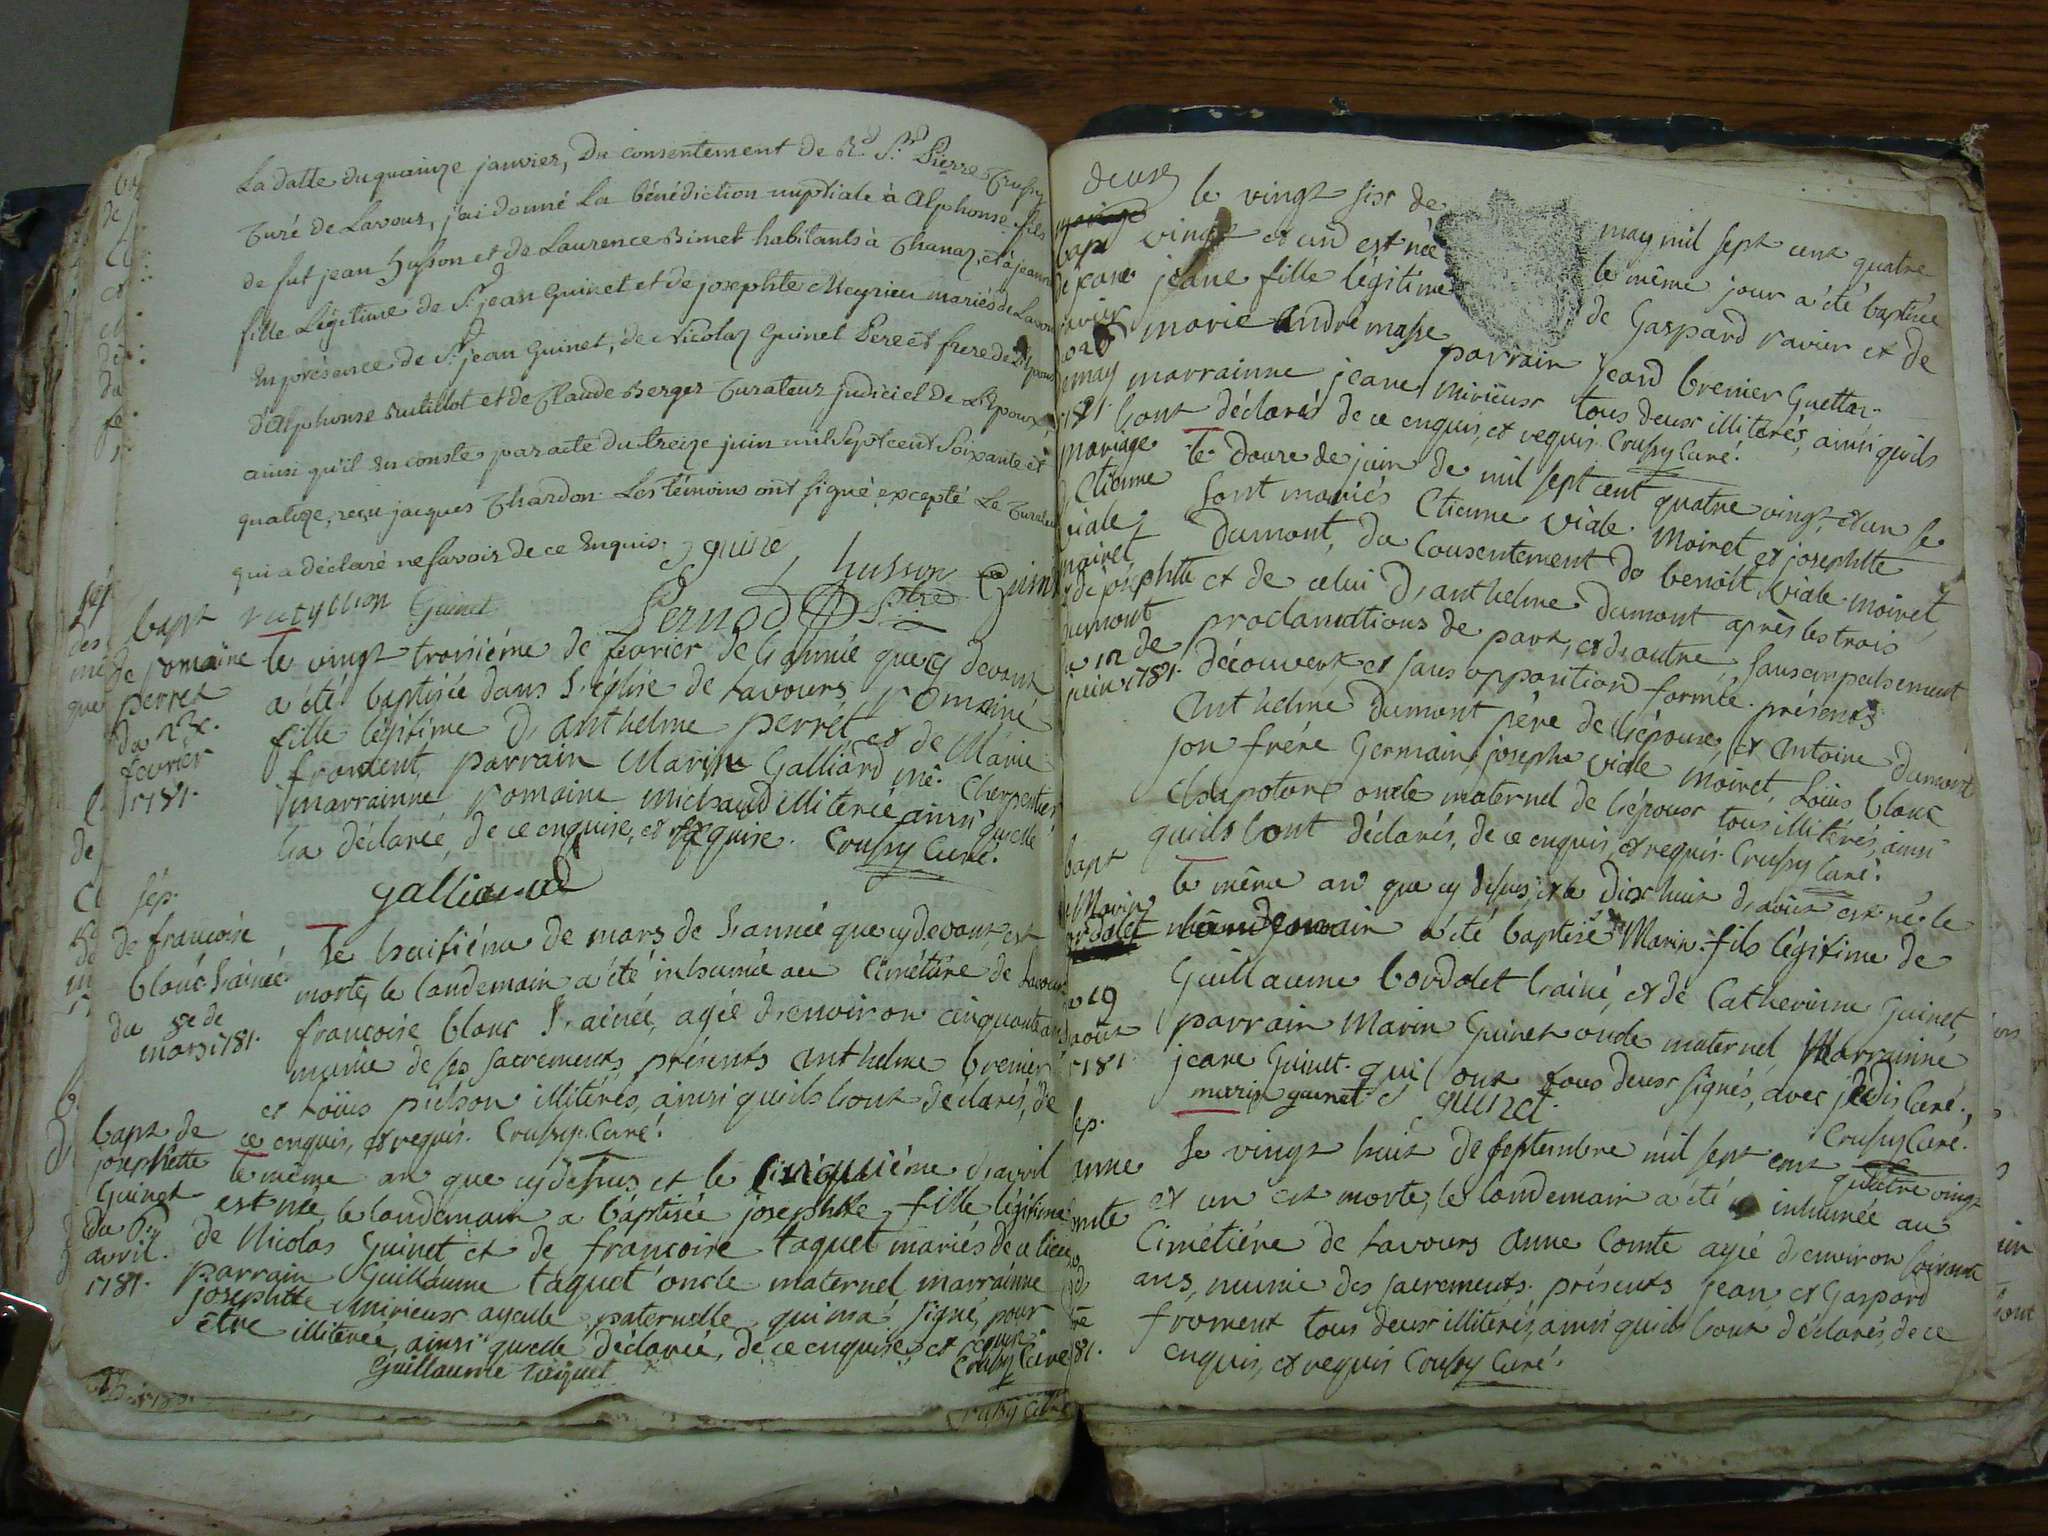 La datte du quainze janvier, Du consentement de Rd Sr Pierre Crussy
Curé de Lavour, j'ai donné La bénédiction nuptiale à Alphonse fils
de fut jean husson et de Laurence Bimet habitants à Chanaz, et à jeanne
fille Légitime de Sr jean Guinet et de josephte Meyrieu mariés de Lavour
En présence de Sr jean Guinet, de Nicolas Guinet Pere et frere de
d'Alphonse Rutillot et de Claude Berger Curateur judiciel de L'Epoux
ainsi qu'il en conste par acte du treize juin mil Sept cent Soixante et
quatorze, reçu jacques Chardon. Les témoins ont signé excepté Le Curateur
qui a déclaré ne savoir de ce Enquis.
Guinet
husson
bapt
de romaine
perret
du 23e.
fevrier
1781.
Le vingt troisiéme de fevrier de L'année que cy devant
a été baptisée dans L'église de Lavours romaine
fille légitime D'anthelme perret et de Marie
froment, parrain Marin Galliard me. Cherpentier
marrainne romaine michaud illiterée ainsi quelle
la déclarée, de ce enquise, et requise. Crussy Curé.
galliard
sép.
de francoise
blanc L'ainée.
du 8e de
mars 1781.
Le huitiéme de mars de L'année que cy devant, est
morte, le landemain a été inhumée au Cimétiére de Lavours
francoise blanc L'ainée, agée d'environ cinquante ans
munie de ses sacrements, présents anthelme brenier
et Loüis pichon illitérés, ainsi quils l'ont déclarés, de
ce enquis, et requis. Crussy Curé.
bapt de
josephette
Guinet
du
avril.
1781.
Le même an que cy dessus et le cinquiéme d'avril
est née, le landemain a baptisée josephte fille légitime
de Nicolas Guinet et de francoise taquet mariés de ce lieu
parrain Guillaume taquet oncle maternel marrainne
josephte mirieux ayeule paternelle qui n'a signé, pour
être illiterée, ainsi quelle déclarée, de ce enquise et requise
Guillaume taquet
Crussy Curé
deux
le vingt six de may mil sept cent quatre
vingt et un est née le même jour a été baptisée
jeane fille légitime de Gaspard ravier et de
marie andremasse parrain jean brenier Guettaz.
marrainne jeane mirieux tous deux illitérés, ainsi quils
l'ont déclarés de ce enquis, et requis. Crussy Curé.
bapt
de jeane
ravier
may
1781.
mariage
Etienne
viale
moiret,
de josephte
dumont
12 de
juin 1781.
Le douze de juin de mil sept cent quatre vingt et un se
sont mariés Etienne viale. Moiret et josephte
Dumont, du Consentement de benoît viale-moiret,
et de celui D'anthelme Dumont après les trois
proclamations de part, et d'autre, sans empechement
découvert, et sans opposition formée. présents
Anthelme Dumont pére de l'épouse, et Antoine dumont
son frére Germain, joseph viale moiret, Loüis blanc
Chapoton oncle maternel de l'époux tous illitérés, ainsi
quils l'ont déclarés, de ce enquis, et requis. Crussy Curé.
bapt
de Marin
bordolet
19
aoüt
1781.
Le même an que cy dessus, et le dix huit d'aoüt est né le
landemain a été baptisé Marin fils légitime de
Guillaume bordolet l'ainé, et de Catherinne Guinet,
parrain Marin Guinet oncle maternel, Marrainne
jeane Guinet. qui ont tous deux signés, avec jedis Curé.
marin guinet
Guinet
Crussy Curé.
sep.
anne
Comte
81.
Le vingt huit de septembre mil sept cent quatre vingt
et un est morte, le landemain a été inhumée au
Cimétiére de Lavours anne Comte agée d'environ soixante
ans, munie des sacrements. présents jean, et Gaspard
froment tous deux illitérés, ainsi quils l'ont déclarés, de ce
enquis, et requis Crussy Curé.